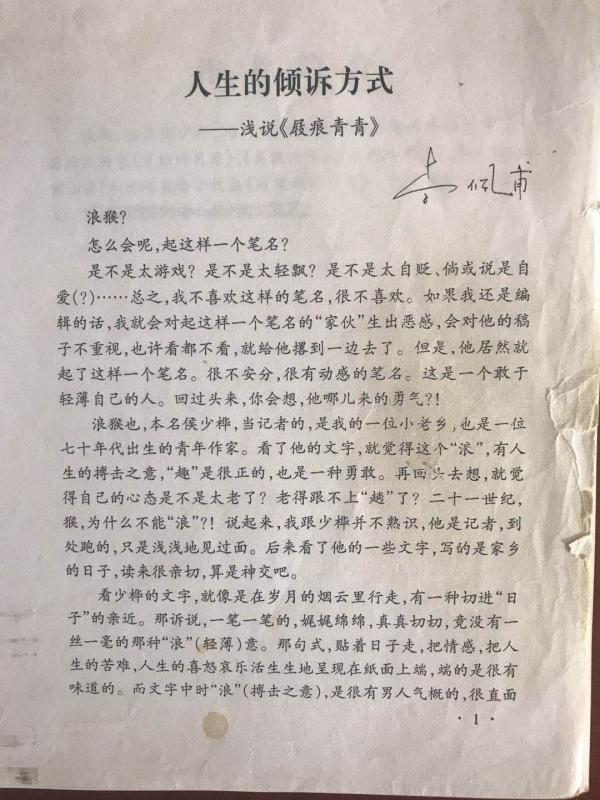 人生的倾诉方式
——浅说《屐痕青青》
李佩甫
浪猴?
怎么会呢,起这样一个笔名?
是不是太游戏?是不是太轻飘?是不是太自贬、倘或说是自
爱(?)……总之,我不喜欢这样的笔名,很不喜欢。如果我还是编
辑的话,我就会对起这样一个笔名的“家伙”生出恶感,会对他的稿
子不重视,也许看都不看,就给他撂到一边去了。但是,他居然就
起了这样一个笔名。很不安分,很有动感的笔名。这是一个敢于
轻薄自己的人。回过头来,你会想,他哪儿来的勇气?!
浪猴也,本名侯少桦,当记者的,是我的一位小老乡,也是一位
七十年代出生的青年作家。看了他的文字,就觉得这个“浪”,有人
生的搏击之意,“趣”是很正的,也是一种勇敢。再回头去想,就觉
得自己的心态是不是太老了?老得跟不上“趟”了?二十一世纪,
猴,为什么不能“浪”?!说起来,我跟少桦并不熟识,他是记者,到
处跑的,只是浅浅地见过面。后来看了他的一些文字,写的是家乡
的日子,读来很亲切,算是神交吧。
看少桦的文字,就像是在岁月的烟云里行走,有一种切进“日
子”的亲近。那诉说,一笔一笔的,娓娓绵绵,真真切切,竟没有一
丝一毫的那种“浪”(轻薄)意。那句式,贴着日子走,把情感,把人
生的苦难,人生的喜怒哀乐活生生地呈现在纸面上端,端的是很有
味道的。而文字中时“浪”(搏击之意),是很有男人气概的,很直面
·1·